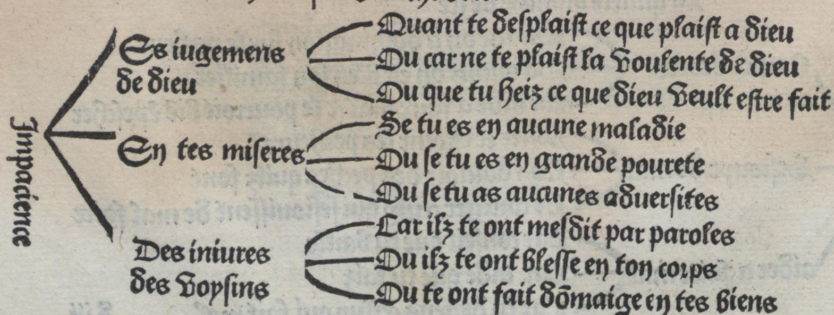 Impacience
Es iugemens
de dieu
Quant te desplaist ce que plaist a dieu
Ou car ne te plaist la voulente de dieu
Ou que tu heiz ce que dieu veult estre fait
En tes miseres
Se tu es en aucune maladie
Ou se tu es en grande pourete
Ou se tu as aucunes aduersites
Des iniures
des voysins
Car ilz te ont mesdit par paroles
Ou ilz te ont blesse en ton corps
Ou te ont fait dōmaige en tes biens